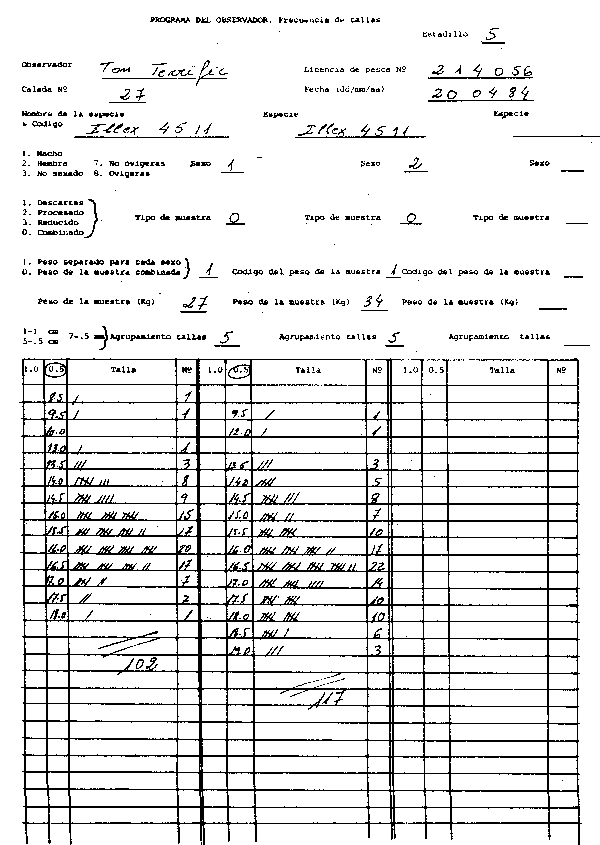 PROGRAMA DEL OBSERVADOR. Frecuencia de tallas
Estadillo 5
Observador Tom Terrific Licencia de pesca Nº 214056
Calada Nº 27 Fecha (dd/mm/aa) 200484
Nombre de la especie Especie Especie
+ Codigo Illex 4511 Illex 4511
1. Macho
2. Hembra 7. No ovigeras Sexo 1 Sexo 2 Sexo
3. No sexado 8. Ovigeras
1. Descartes
2. Procesado Tipo de muestra 0 Tipo de muestra 0 Tipo de muestra
3. Reducido
0. Combinado
1. Peso separado para cada sexo
0. Peso de la muestra combinada 1 Codigo del peso de la muestra 1 Codigo del peso de la muestra
Peso de la muestra (Kg) 27 Peso de la muestra (Kg) 34 Peso de la muestra (Kg)
1-1 cm 7-.5 Agrupamiento tallas 5 Agrupamiento tallas 5 Agrupamiento tallas
5-.5 cm
1.0 0.5 Talla Nº 1.0 0.5 Talla Nº 1.0 0.5 Talla Nº
8.5 / 1
9.5 / 1 9.5 / 1
12.0 / 1
13.0 / 1
13.5 /// 3 13.5 /// 3
14.0 //// /// 8 14.0 //// 5
14.5 //// //// 9 14.5 //// /// 8
15.0 //// //// //// 15 15.0 //// // 7
15.5 //// //// //// // 17 15.5 //// //// 10
16.0 //// //// //// //// 20 16.0 //// //// //// // 17
16.5 //// //// //// // 17 16.5 //// //// //// //// // 22
17.0 //// // 7 17.0 //// //// //// 14
17.5 // 2 17.5 //// //// 10
18.0 / 1 18.0 //// //// 10
18.5 //// / 6
19.0 /// 3
102
117